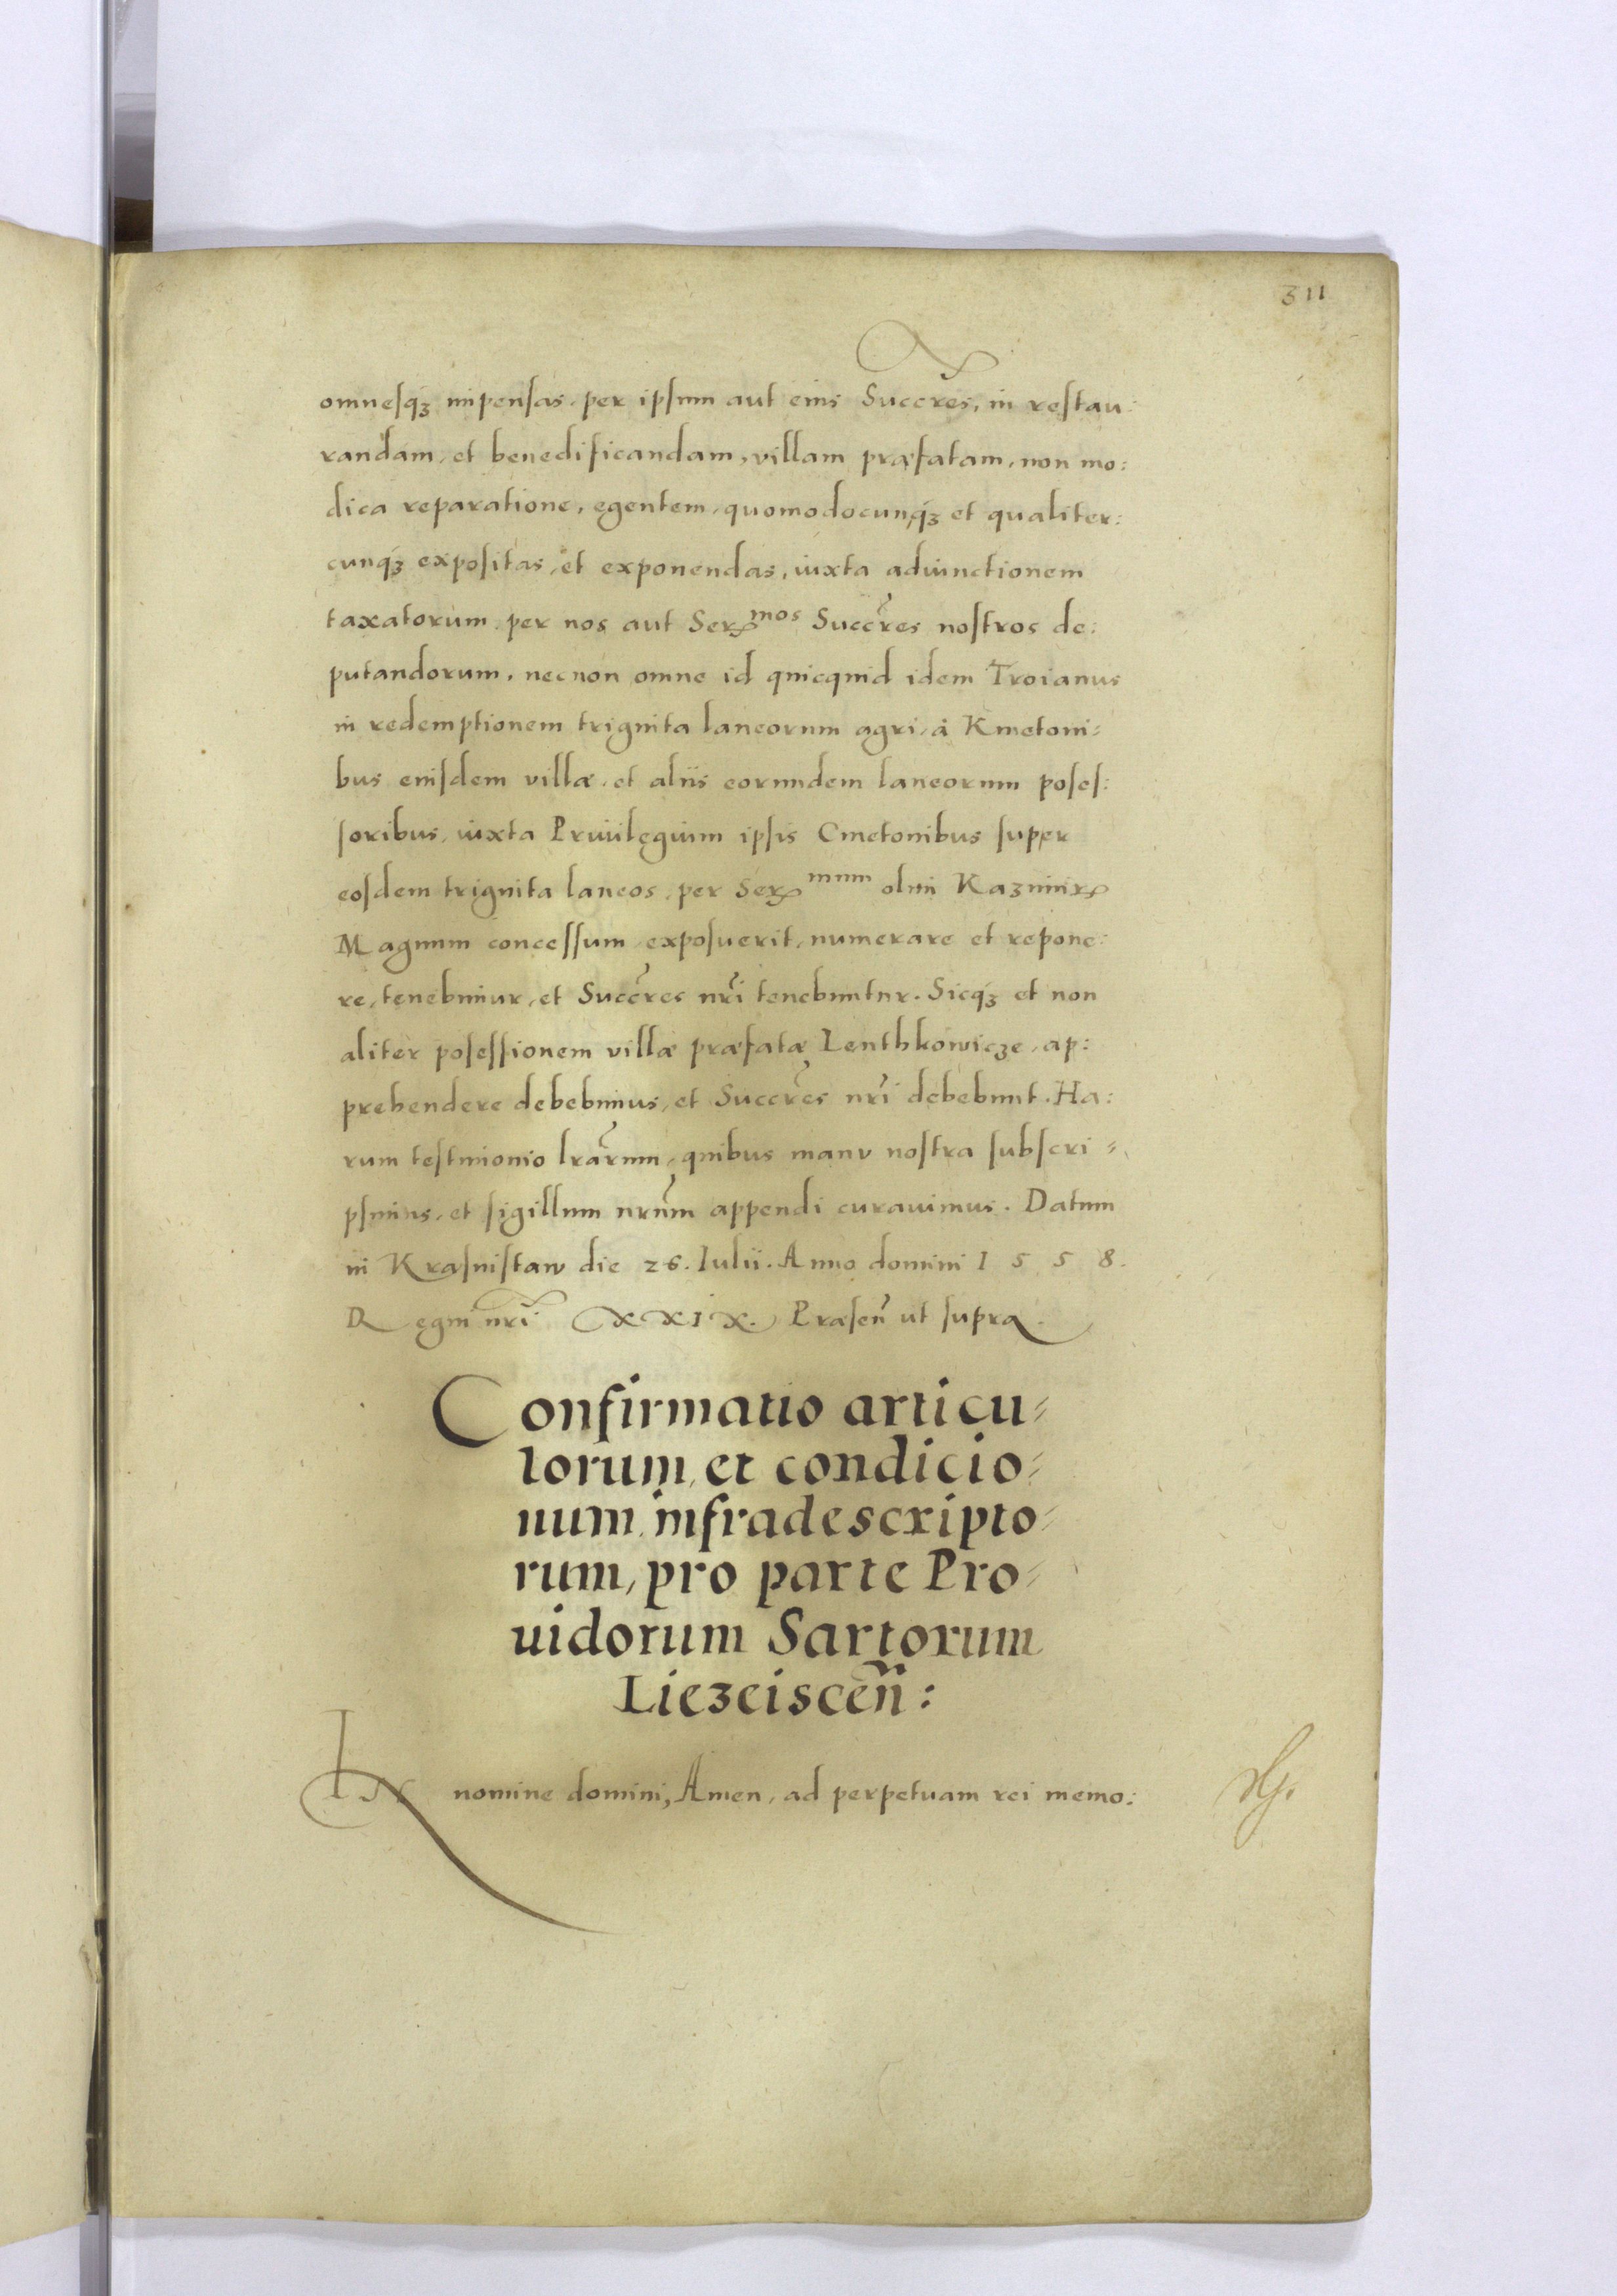 311
omnesq́ꝫ impensas, per ipsum aut eius Succr̃es, in restau:
randam, et benedificandam, villam præfatam, non mo:
dica reparatione, egentem, quomodocunq́ꝫ et qualiter:
cunq́ꝫ expositas, et exponendas, iuxta adiunctionem
taxatorum per nos aut Ser^mos Succr̃es nostros de:
putandorum, necnon omne id quicquid idem Troianus
in redemptionem triginta laneorum agri, à Kmetoni=
bus eiusdem villæ, et aliis eorundem laneorum poses:
soribus, iuxta Priuilegium ipsis Cmetonibus super
eosdem triginta laneos, per Ser^mum olim Kazimir
Magnum concessum exposuerit, numerare et repone:
re, tenebimur, et Succr̃es nr̃i tenebuntur. Sicq́ꝫ et non
aliter posessionem villæ præfatæ Lenthkowicze, ap:
prehendere debebimus, et Succr̃es nr̃i debebunt. Ha:
rum testimonio lr̃arum, quibus manu nostra subscri=
psimus, et sigillum nr̃um appendi curauimus. Datum
in Krasnistaw die 26. Iulii. Anno domini 1558.
Regni nr̃i XXIX. Præsen̄ ut supra.
Confirmatio articu=
lorum, et condicio=
num infradescripto=
rum, pro parte Pro=
uidorum Sartorum
Liezeiscen̄:
IN nomine domini, Amen, ad perpetuam rei memo: